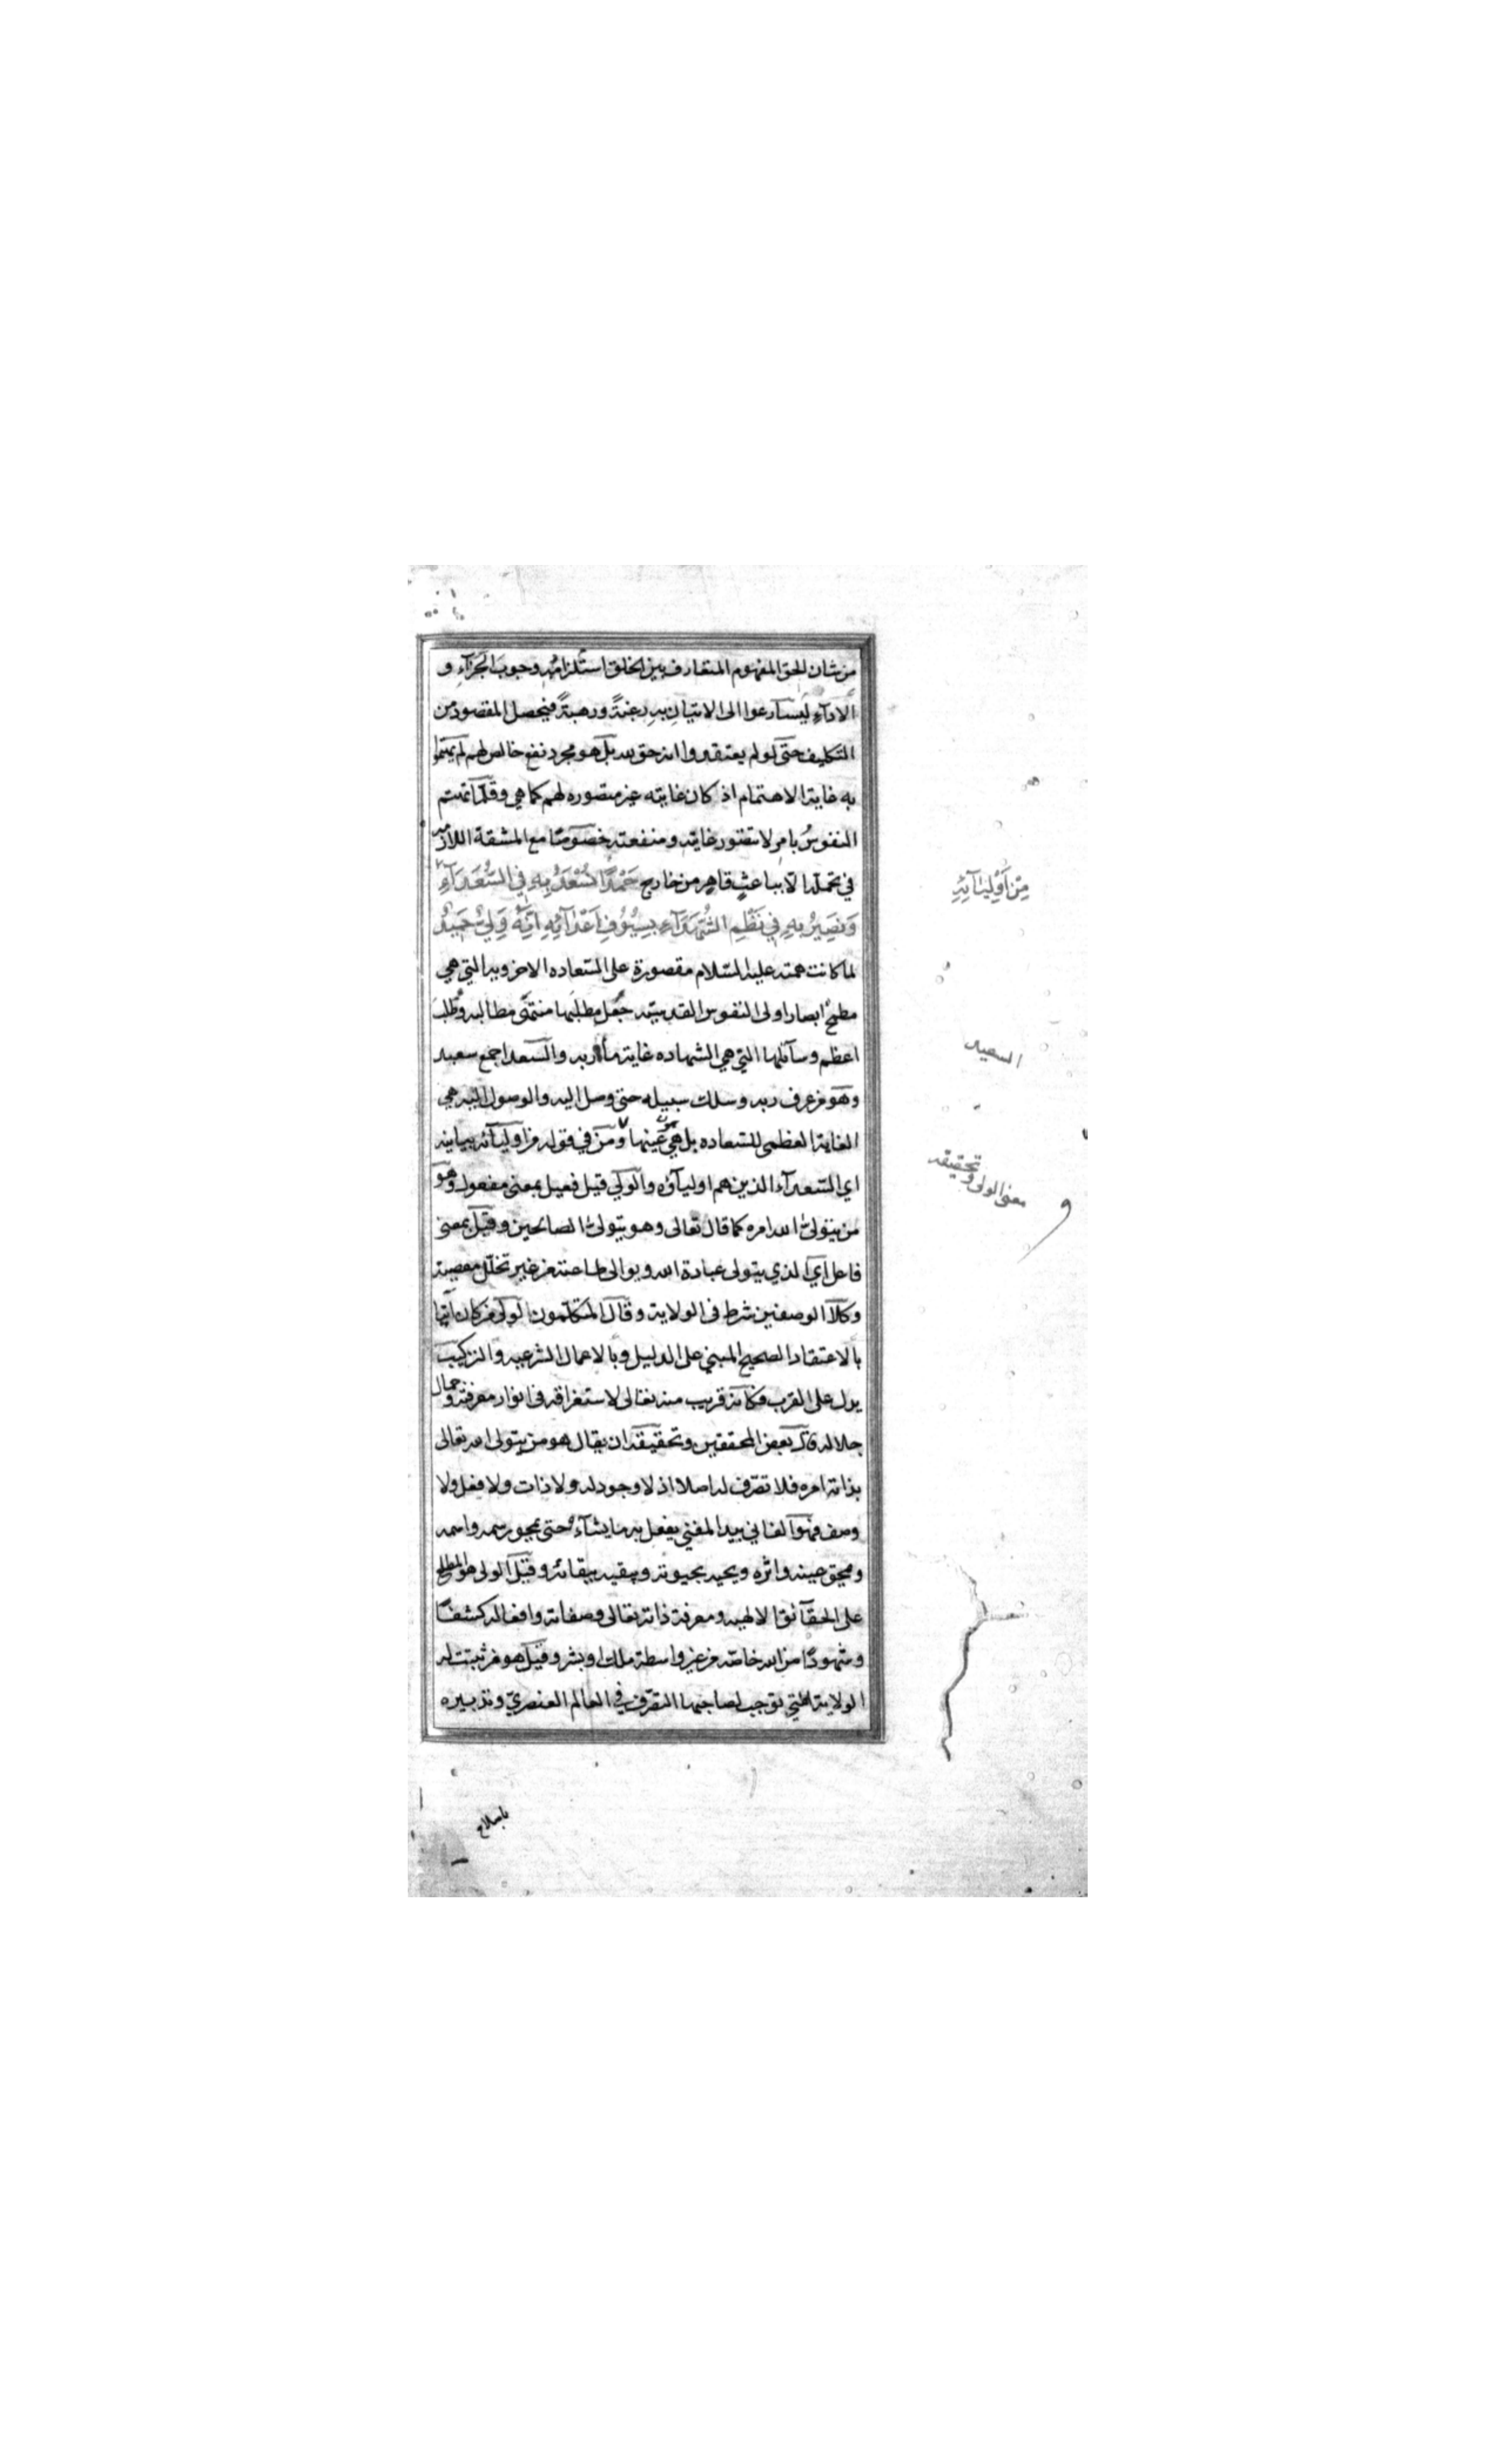 من شان الحق المفهوم المتعارف بين الخلق استلزامه وجوب الجزآء و
الادآء ليسارعوا الى الاتيان به رغبةً ورهبةً فيحصل المقصود من
التكليف حتى لو لم يعتقدوا انه حق لله بل هو مجرد نفع خالص لهم لم يهتموا
به غاية الاهتمام اذ كان غايته غير متصوره لهم كما هي وقلّما تهتم
النفوسُ بامرٍ لا تتصور غايته ومنفعته خصوصًا مع المشقة اللازمه
في تحمله الا بباعثٍ قاهرٍ من خارج حَمْدًا نَسْعَدُ بِهِ في السُّعَدَآءِ
مِنْ اَوْلِيَآئِهِ
وَنَصِيرُ بِهِ فِي نَظْمِ الشُّهَدَآءِ بِسُيُوفِ اَعْدَآئِهِ اِنَّهُ وَلِيٌّ حَمِيدٌ
لما كانت همته عليه السّلام مقصورة على السعاده الاخرويه التي هي
مطمح ابصار اولى النفوس القدسيّه جعل مطلبها منتهى مطالبه وطلب
اعظم وسآئلها التي هي الشهاده غاية مآربه والسعدا جمع سعيد
السعيد
وهو من عرف ربه وسلك سبيله حتى وصل اليه والوصول اليه هي
الغاية العظمى للسعاده بل هي عينها ومن في قوله من اوليآئه بيانيه
معنى الولى وتحقيقه
اي السّعدآء الذين هم اوليآؤه والولي قيل فعيل بمعنى مفعول وهو
من يتولى الله امره كما قال تعالى وهو يتولى الصالحين وقيل بمعنى
فاعل اي الذي يتولى عبادة الله ويوالى طاعته من غير تخلّل معصية
وكلا الوصفين شرط فى الولاية وقال المتكلّمون الولي من كان آتيا
بالاعتقاد الصحيح المبني على الدليل وبالاعمال الشرعيه والتركيب
يدل على القرب فكانه قريب منه تعالى لاستغراقه فى انوار معرفته وجمال
جلاله قال بعض المحققين وتحقيقه ان يقال هو من يتولى الله تعالى
بذاته امره فلا تصرّف له اصلا اذ لا وجود له ولا ذات ولا فعل ولا
وصف فهو الفاني بيد المفني يفعل به ما يشآء حتى يمحو رسمه واسمه
ويمحق عينه واثره ويحييه بحيوته ويبقيه ببقائه وقيل الولى هو المطلع
على الحقآئق الالهيه ومعرفة ذاته تعالى وصفاته وافعاله كشفًا
وشهودًا من الله خاصّه من غير واسطة ملك او بشر وقيل هو من ثبتت له
الولاية التي توجب لصاحبها التصرّف في العالم العنصريّ وتدبيره
باصلاح